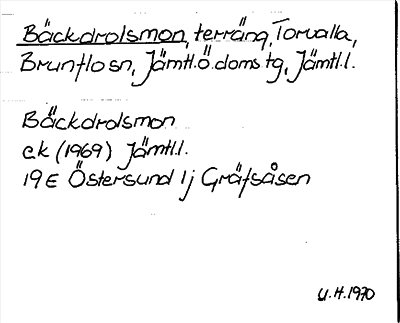 Bäckdrolsmon, terräng, Torvalla,
Brunflo sn, Jämtl.Ö.doms tg, Jämtl.l.
Bäckdrolsmon
ek (1969) Jämtl.l.
19E Östersund 1j Gräfsåsen
U.H.1970